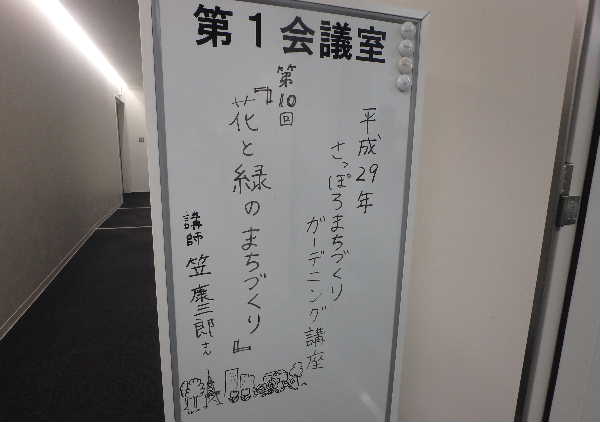 第1会議室
平成29年
さっぽろまちづくり
ガーデニング講座
第10回
『花と緑のまちづくり』
講師 笠 康三郎さん